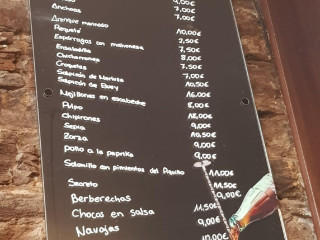 Anchoas 7,00€
7,00€
Pequeño 10,00€
Espárragos con mahonesa 2,50€
Ensaladilla 7,50€
Chicharrones 8,00€
Croquetas 7,50€
Salpicón de Merluza 7,00€
Salpicón de Buey 10,50€
Mejillones en escabeche 16,00€
Pulpo 8,00€
Chipirones 18,00€
Sepia 9,00€
Zorza 10,50€
Pollo a la paprika 9,00€
Solomillo con pimientos del Piquillo 9,00€
Secreto 11,00€
Berberechos 11,50€
Chocos en salsa 9,00€
Navajas 11,50€
9,00€
10,00€